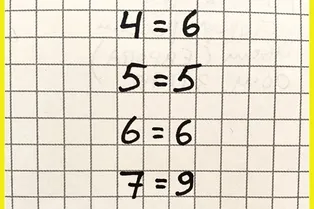 4 = 6
5 = 5
6 = 6
7 = 9